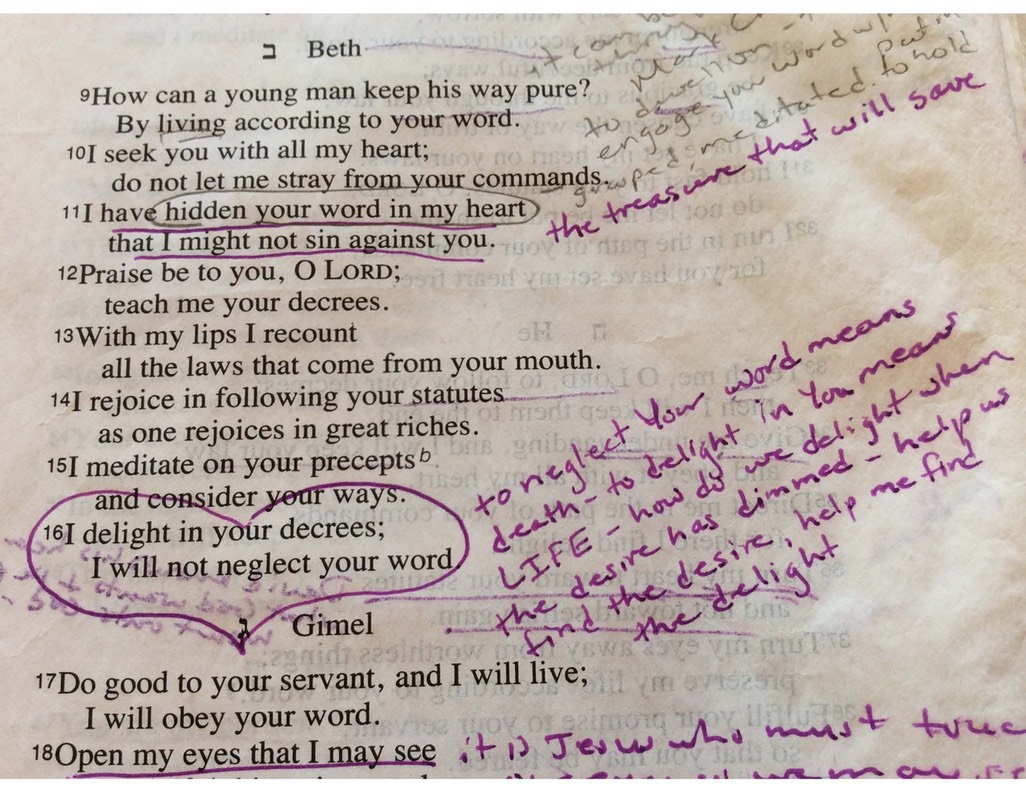 ב Beth
9How can a young man keep his way pure?
By living according to your word.
10I seek you with all my heart;
do not let me stray from your commands.
11I have hidden your word in my heart
that I might not sin against you.
12Praise be to you, O LORD;
teach me your decrees.
13With my lips I recount
all the laws that come from your mouth.
14I rejoice in following your statutes
as one rejoices in great riches.
15I meditate on your precepts b
and consider your ways.
16I delight in your decrees;
I will not neglect your word.
ג Gimel
17Do good to your servant, and I will live;
I will obey your word.
18Open my eyes that I may see
to dwell on
engage your word
meditated to hold
the treasure that will save
to neglect Your word means
death - to delight in You means
LIFE - how do we delight when
the desire has dimmed - help us
find the desire, help me find
the delight
it is Jesus who must